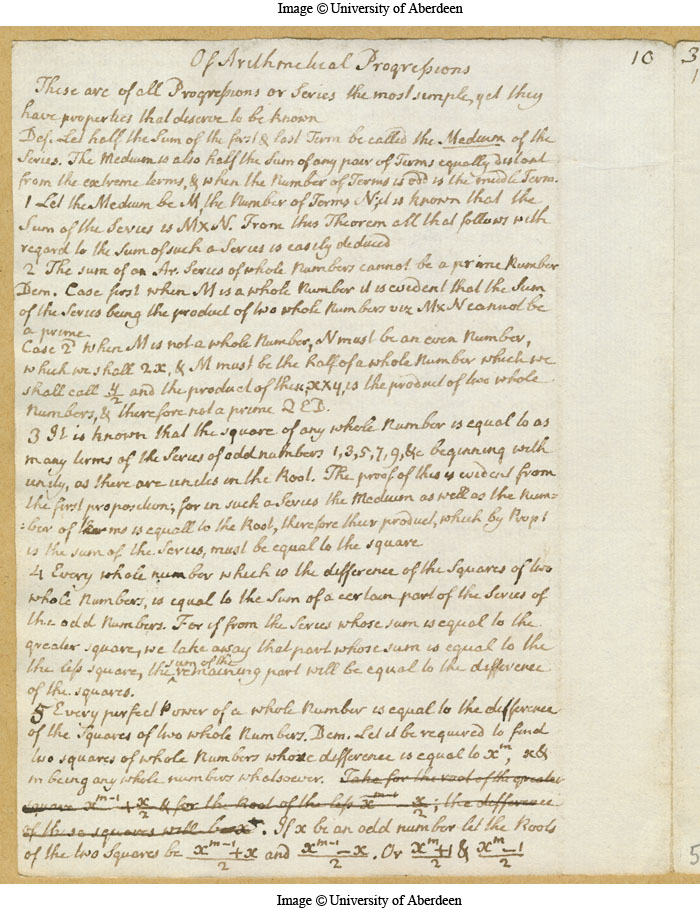 Image © University of Aberdeen
Of Arithmetical Progressions
10
3
1
These are of all Progressions or Series the most simple, yet they
have properties that deserve to be known
Def. Let half the Sum of the first & last Term be called the Medium of the
Series. The Medium is also half the Sum of any pair of Terms equally distant
from the extreme terms, & when the Number of Terms is odd is the middle Term.
1 Let the Medium be M, the Number of Terms N; it is known that the
Sum of the Series is M×N. From this Theorem all that follows with
regard to the Sum of such a Series is easily deduced
2 The sum of an Ar. Series of whole Numbers cannot be a prime Number
Dem. Case first when M is a whole Number it is evident that the Sum
of the Series being the product of two whole Numbers viz M×N cannot be
a prime
Case 2d When M is not a whole Number, N must be an even Number,
which we shall 2x, & M must be the half of a whole Number which we
shall call y/2 and the product of these, x×y, is the product of two whole
Numbers, & therefore not a prime Q E D.
3 It is known that the square of any whole Number is equal to as
many terms of the Series of odd numbers 1, 3, 5, 7, 9, &c beginning with
unity, as there are unites in the Root. The proof of this is evident from
the first proposition; for in such a Series the Medium as well as the Num=
=ber of terms is equall to the Root, therefore their product, which by Prop 1
is the sum of the Series, must be equal to the square
4 Every whole number which is the difference of the Squares of two
whole Numbers, is equal to the Sum of a certain part of the Series of
the odd Numbers. For if from the Series whose sum is equal to the
greater square, we take away that part whose sum is equal to the
the less square, the sum of the remaining part will be equal to the difference
of the squares.
5 Every perfect Power of a whole Number is equal to the difference
of the Squares of two whole Numbers. Dem. Let it be required to find
two squares of whole Numbers whose difference is equal to x^m, x &
m being any whole numbers whatsoever. Take for the root of the greater
square x^m-1 + x/2 & for the Root of the less x^m-1 - x/2; the difference
of these squares will be x^m. If x be an odd number let the Roots
of the two Squares be x^m-1+x/2 and x^m-1-x/2. Or x^m+1/2 & x^m-1/2
5
Image © University of Aberdeen